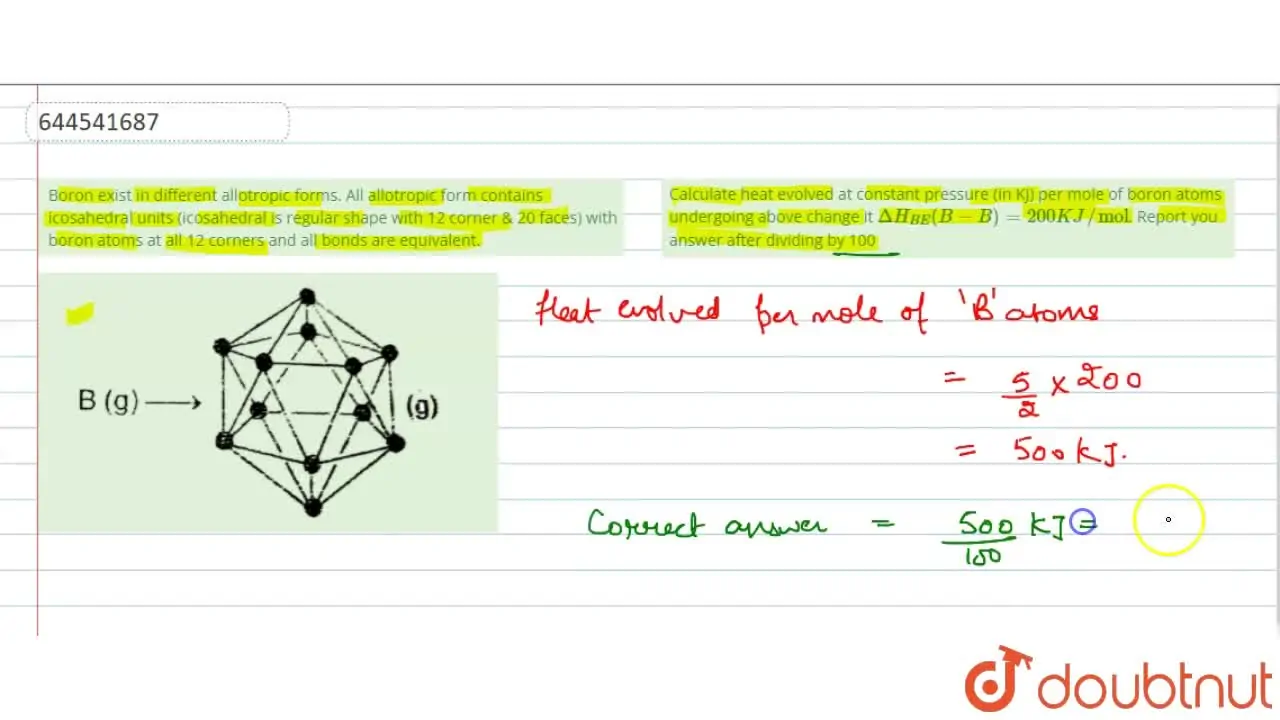 644541687
Boron exist in different allotropic forms. All allotropic form contains
icosahedral units (icosahedral is regular shape with 12 corner & 20 faces) with
boron atoms at all 12 corners and all bonds are equivalent.
Calculate heat evolved at constant pressure (in KJ) per mole of boron atoms
undergoing above change it ΔH_BE(B − B) = 200KJ/mol. Report you
answer after dividing by 100
B (g) ⟶ (g)
Heat evolved per mole of 'B' atoms
= 5/2 × 200
= 500 kJ.
Correct answer = 500/100 KJ =
doubtnut